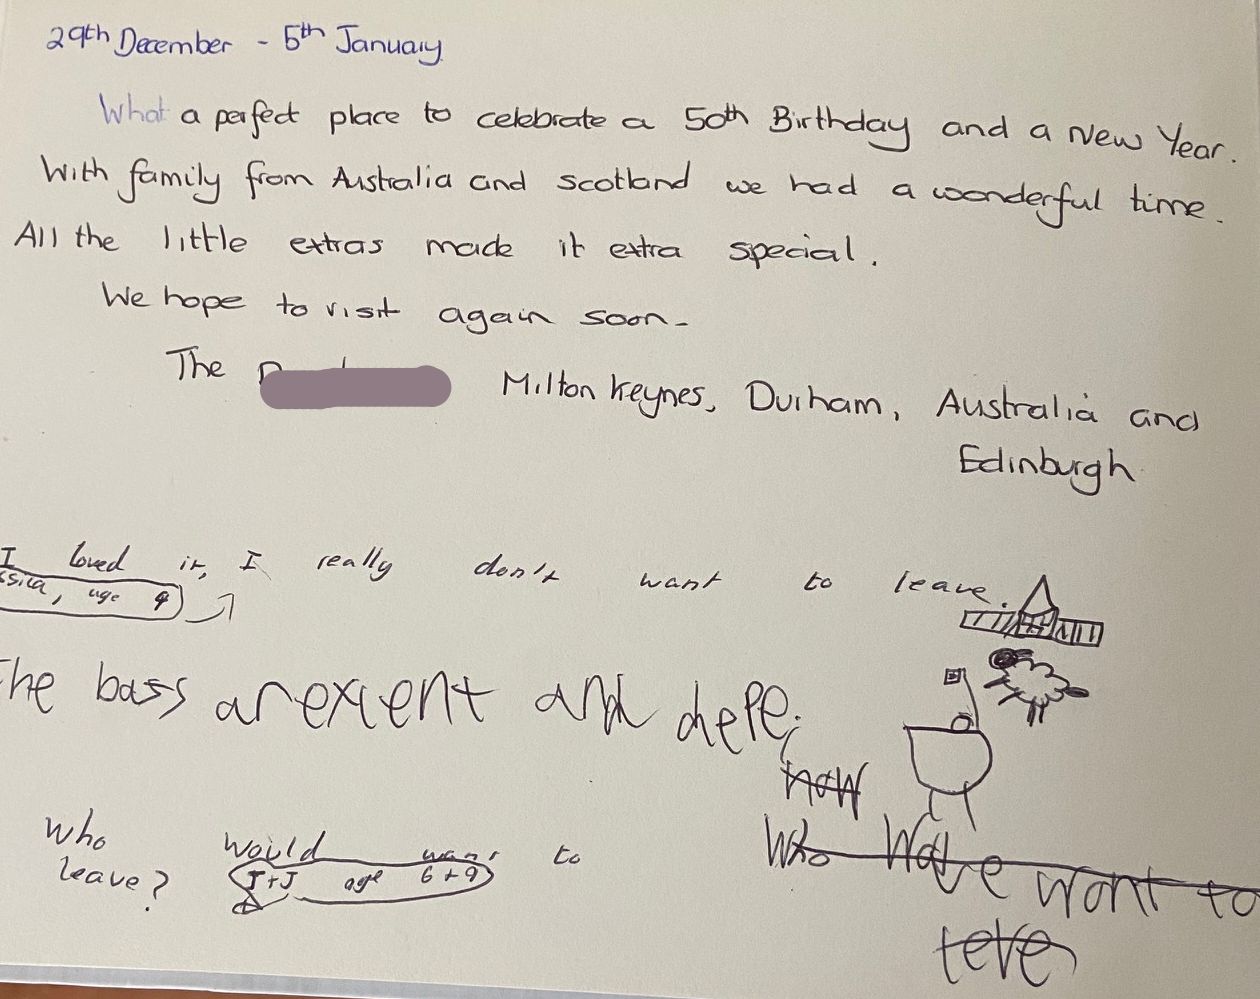 29th December - 5th January
What a perfect place to celebrate a 50th Birthday and a New Year.
With family from Australia and Scotland we had a wonderful time.
All the little extras made it extra special.
We hope to visit again soon-
The Milton Keynes, Durham, Australia and
Edinburgh
I loved it, I really don't want to leave.
ssica, age 9
The bass ar excent and depe.
now
Who want to
Who would want to
leave?
J+J age 6+9